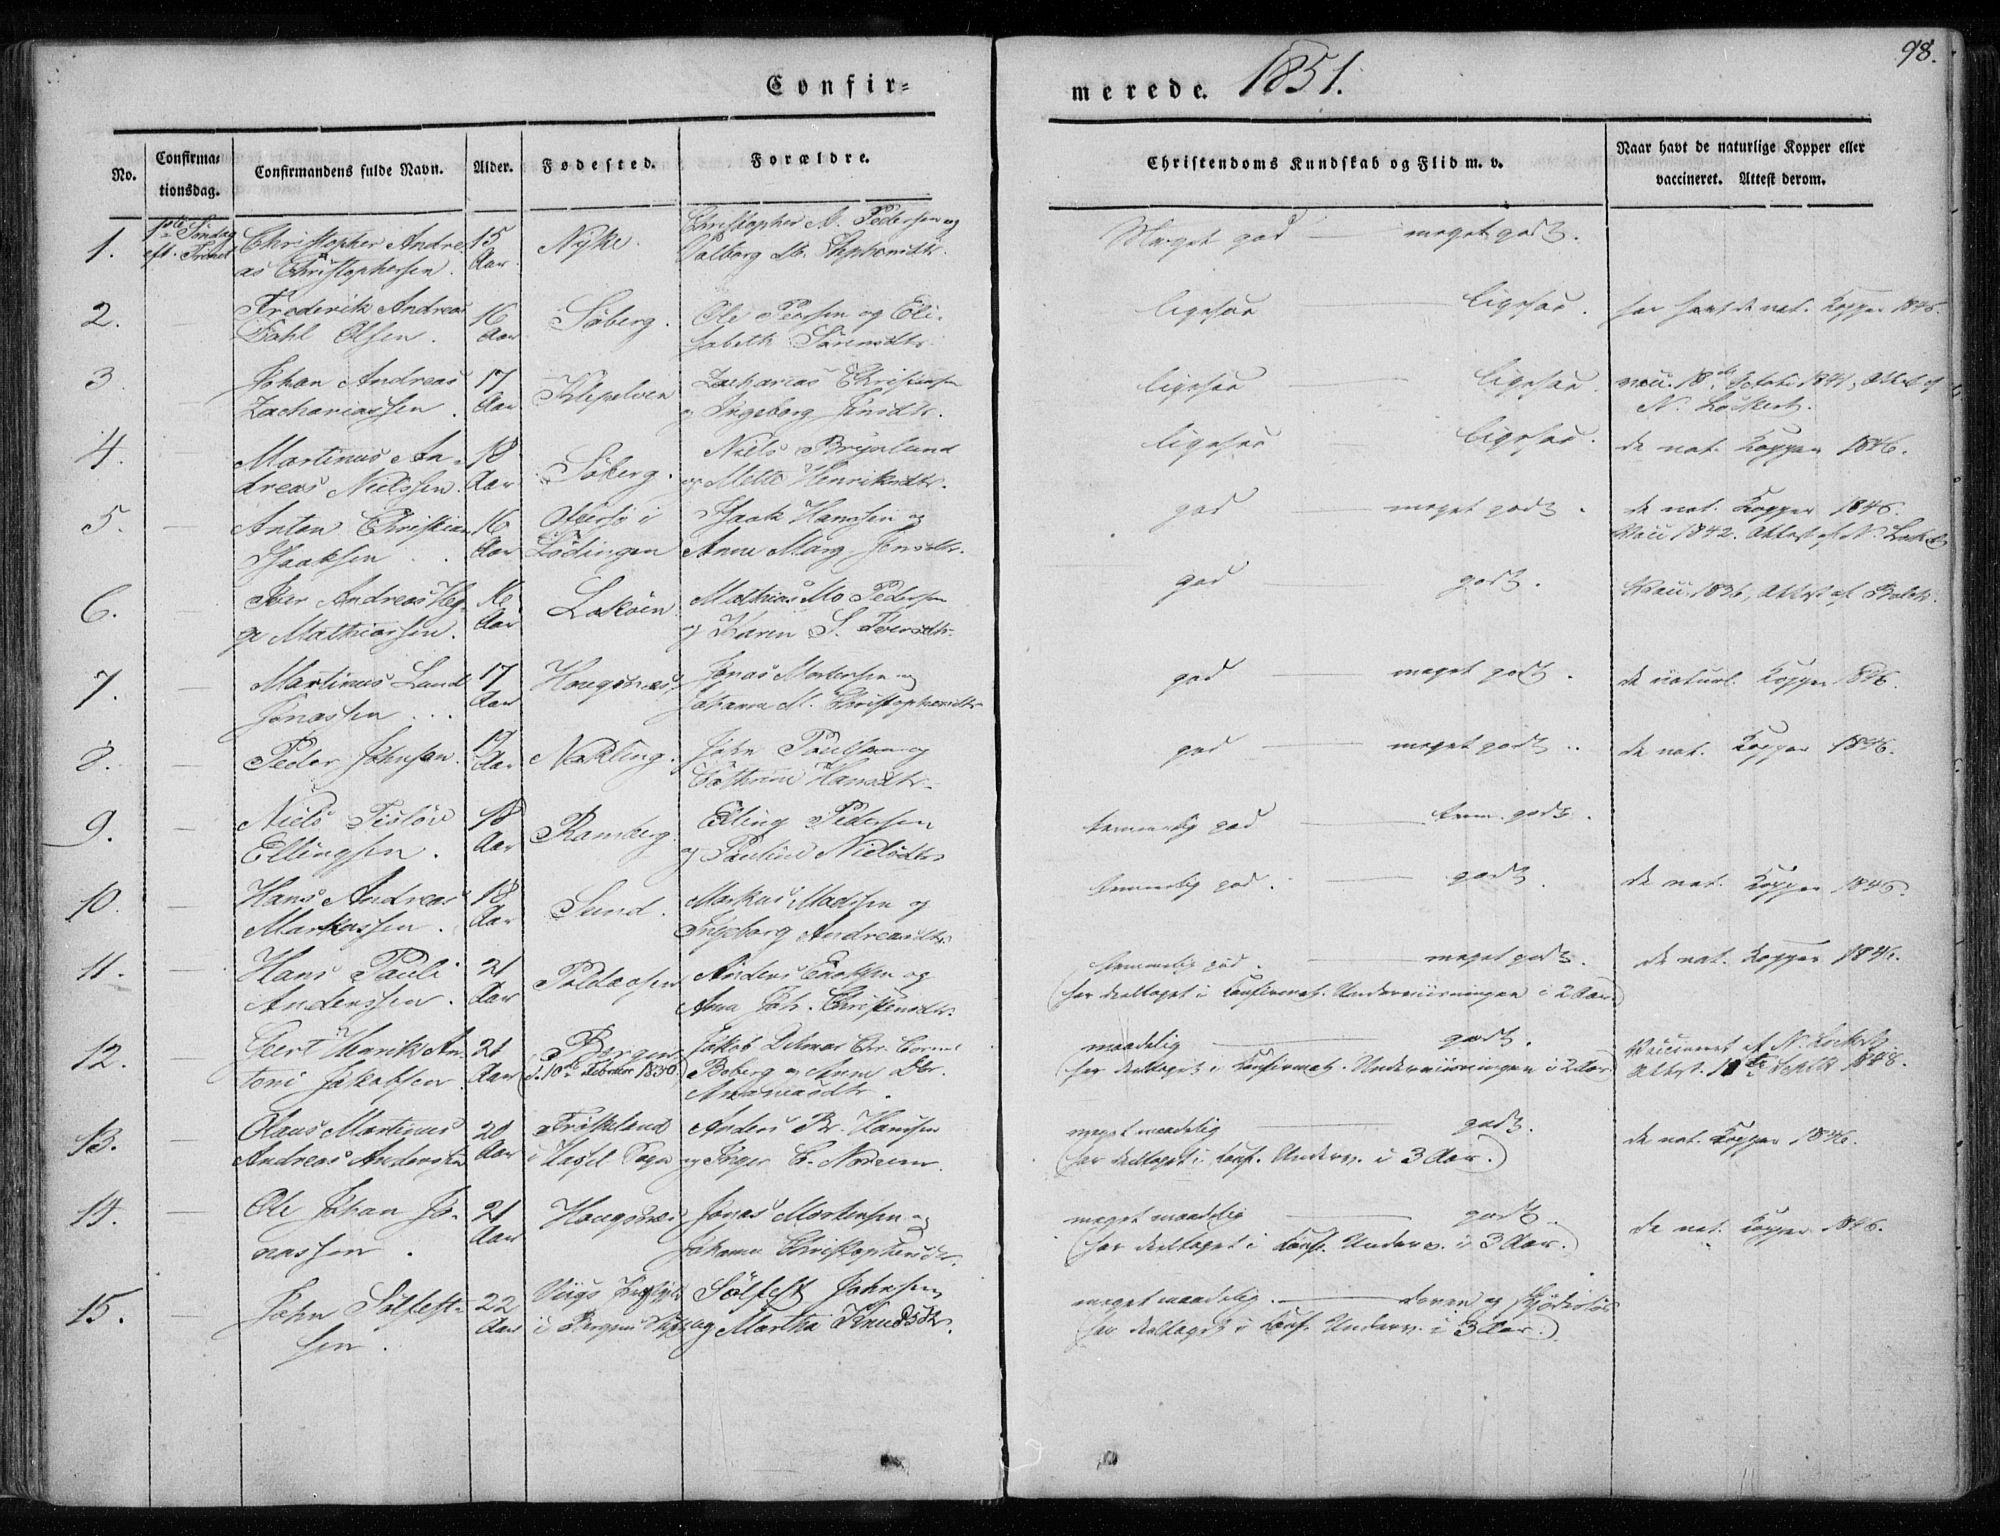 98.
Confir=
merede. 1851.
No.
Confirma=
tionsdag.
Confirmandens fulde Navn.
Alder.
Fødested.
Forældre.
Christendoms Kundskab og Flid m. v.
Naar havt de naturlige Kopper eller
vaccineret. Attest derom.
1.
Søndag
eft. Trinit
Christopher Andre
as Christophersen.
15
Aar
Nyke.
Christopher A. Pedersen og
Meget god — meget godt.
2.
Frederik Andreas
Dahl Olsen.
16
Aar
Søberg.
Ole Persen og Eli-
sabeth Sørensdtr.
ligesaa — ligesaa.
har havt de nat. Kopper 1846.
3.
Johan Andreas
Zachariassen.
17
Aar
Klepelven
Zacharias Christensen
og Ingeborg Jensdtr.
ligesaa — ligesaa.
N. Lockert.
4.
Martinus An-
dreas Nielssen.
18
Aar
Søberg.
Niels Brynlund
og Mette Henriksdtr.
ligesaa — ligesaa.
de nat. Kopper 1846.
5.
Anton Christian
Isaaksen
16
Aar
i
Lødingen
Isaak Hansen og
Anne Marg. Jensdtr.
god — meget godt.
de nat. Kopper 1846.
Vacc. 1842. Attest af N. Lockert
6.
Iver Andreas
Mathiassen.
16
Aar
Lakøen
Mathias Mo Pedersen
og Karen S. Iversdtr.
god — godt.
Vacc. 1836, Attest af
7.
Martinus Lund
Jonassen
17
Aar
Hougsnæs
Jonas Mortensen og
Johanna M. Christophersdtr
god — meget godt.
de naturl. Kopper 1846.
8.
Peder Johnsen.
17
Aar
Nækling.
John Paulsen og
Cathrine Hansdtr.
god — meget godt.
de nat. Kopper 1846.
9.
Niels Tisløv
Ellingsen.
18
Aar
Ramberg.
Elling Pedersen
og Pauline Nielsdtr
temmelig god — tem. godt.
10.
Hans Andreas
Markussen.
18
Aar
Sund.
Markus Madssen og
Ingeborg Andreasdtr.
temmelig god. — godt.
de nat. Kopper 1846.
11.
Hans Pauli
Anderssen.
21
Aar
Anders Ericksen og
Anne Joh. Christensdtr.
temmelig god. — meget godt.
(har deeltaget i Confirmat. Underviisningen i 2 Aar.)
de nat. Kopper 1846.
12.
Geert Henrik An-
toni Jakobsen
21
Aar
Bergen
(f. 10de Februar 1830.)
Boberg og Anne Dor.
maadelig — godt.
(har deeltaget i Confirmat. Underviisningen i 2 Aar.)
Vaccineret af N. Lockert.
13.
Claus Martinus
Andreas Andersen
20
Aar
Frøskeland
i Hassel
Anders Br. Hansen
og Inger C. Norum.
meget maadelig — godt.
(har deeltaget i Conf. Underv. i 3 Aar.)
de nat. Kopper 1846.
14.
Ole Johan Jo-
nassen.
21
Aar
Hougsnæs
Jonas Mortensen og
Johanna Christophersdtr.
meget maadelig — godt.
(har deeltaget i Conf. Underv. i 3 Aar.)
de nat. Kopper 1846.
15.
John Sølfest-
sen.
22
Aar
i Bergens Stift
Sølfest Johnsen
og Martha Knudsdtr.
meget maadelig. — doven og skjødesløs
(har deeltaget i Conf. Underv. i 3 Aar.)